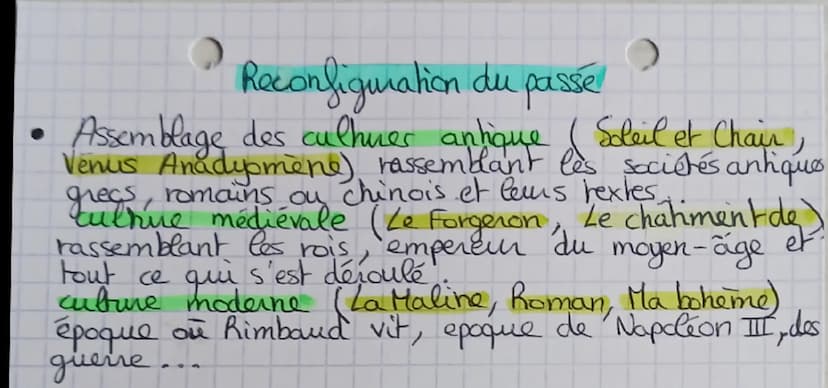 Reconfiguration du passé
• Assemblage des cultures antique (Soleil et Chair,
Vénus Anadyomène) rassemblant les sociétés antiques
grecs, romains ou chinois et leurs textes...
culture médiévale (Le Forgeron, Le chatiment de)
rassemblant les rois, empereur du moyen-âge et
tout ce qui s'est déroulé.
culture moderne (La Maline, Roman, Ma bohème)
époque où Rimbaud vit, epoque de Napoléon III, des
guerre...